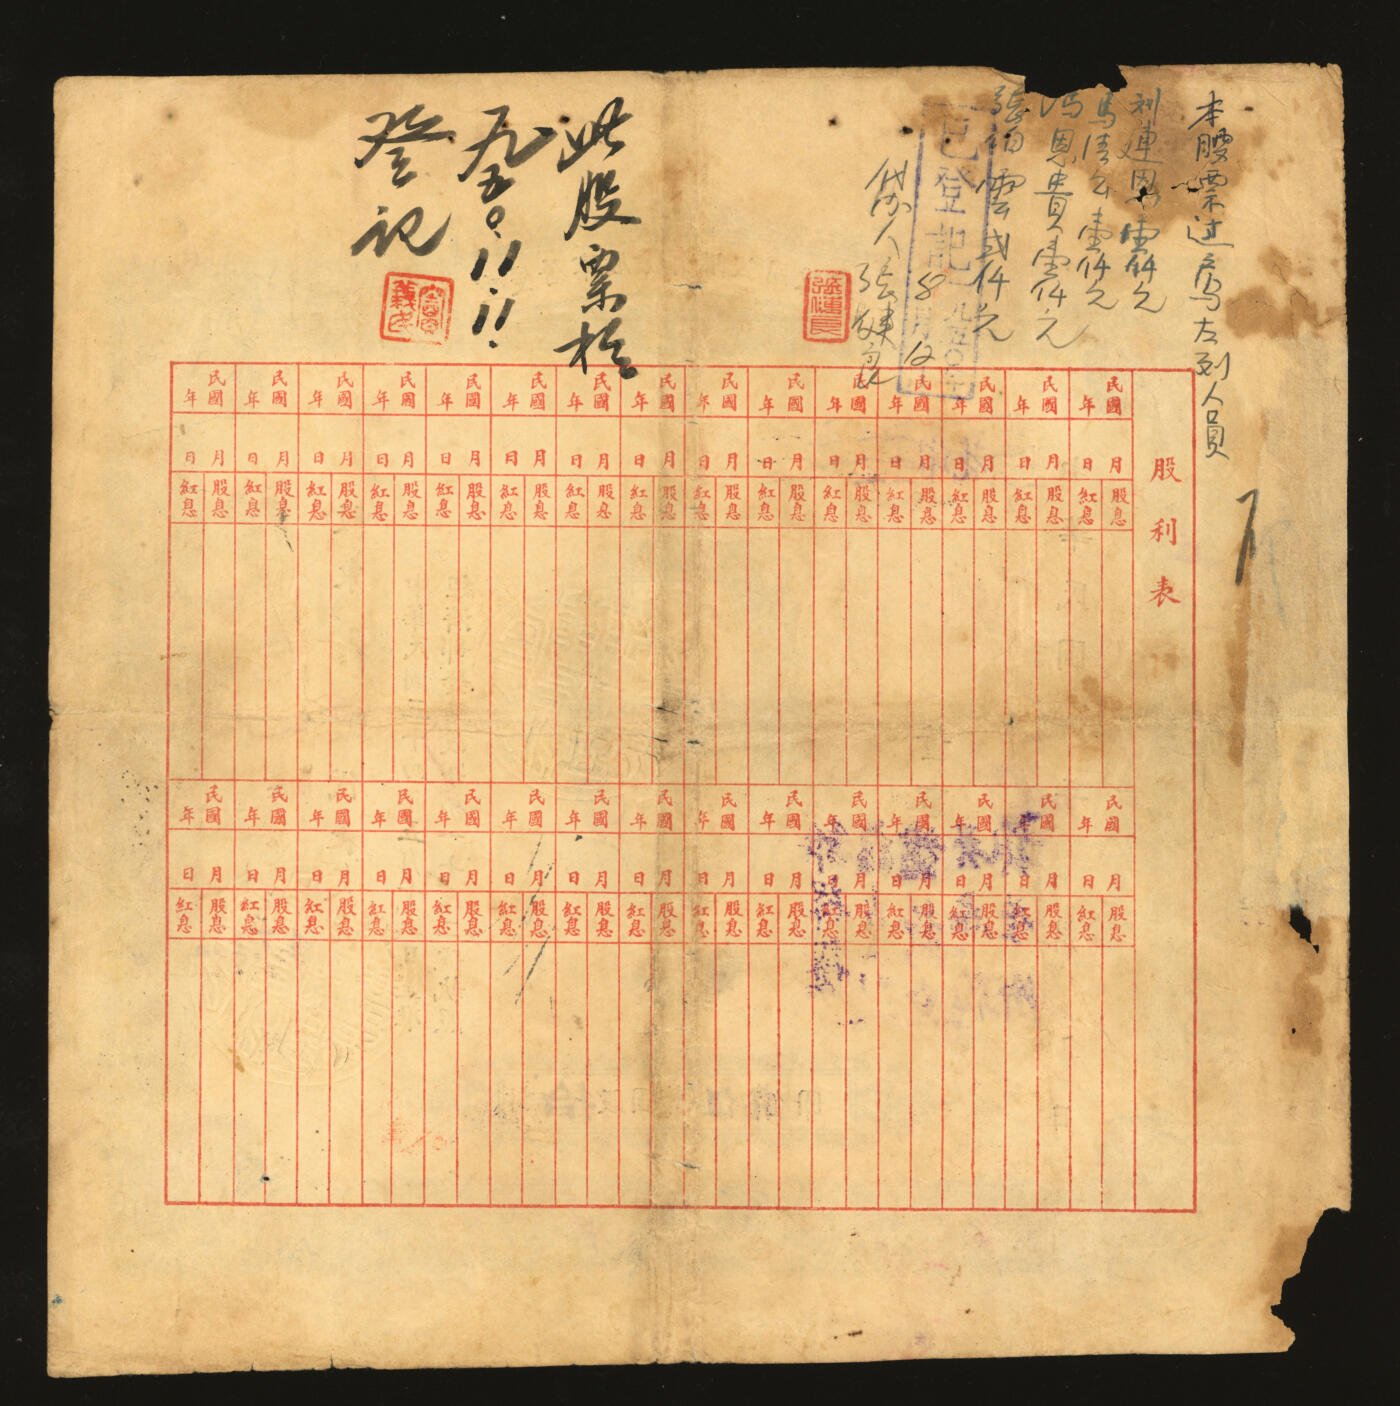 本股票过户为左列人员
刘连男壹仟元
馬清公壹仟元
冯恩贵壹仟元
張伯雲式仟元
已登記 一九五〇年
8月12
張漢良
此股票于
九五〇.11.11.
登记
股利表
民國 年 民國 年 民國 年 民國 年 民國 年 民國 年 民國 年 民國 年 民國 年 民國 年 民國 年 民國 年 民國 年 民國 年 民國 年
月 日 月 日 月 日 月 日 月 日 月 日 月 日 月 日 月 日 月 日 月 日 月 日 月 日 月 日 月 日
股息 紅息 股息 紅息 股息 紅息 股息 紅息 股息 紅息 股息 紅息 股息 紅息 股息 紅息 股息 紅息 股息 紅息 股息 紅息 股息 紅息 股息 紅息 股息 紅息 股息 紅息
民國 年 民國 年 民國 年 民國 年 民國 年 民國 年 民國 年 民國 年 民國 年 民國 年 民國 年 民國 年 民國 年 民國 年 民國 年
月 日 月 日 月 日 月 日 月 日 月 日 月 日 月 日 月 日 月 日 月 日 月 日 月 日 月 日 月 日
股息 紅息 股息 紅息 股息 紅息 股息 紅息 股息 紅息 股息 紅息 股息 紅息 股息 紅息 股息 紅息 股息 紅息 股息 紅息 股息 紅息 股息 紅息 股息 紅息 股息 紅息